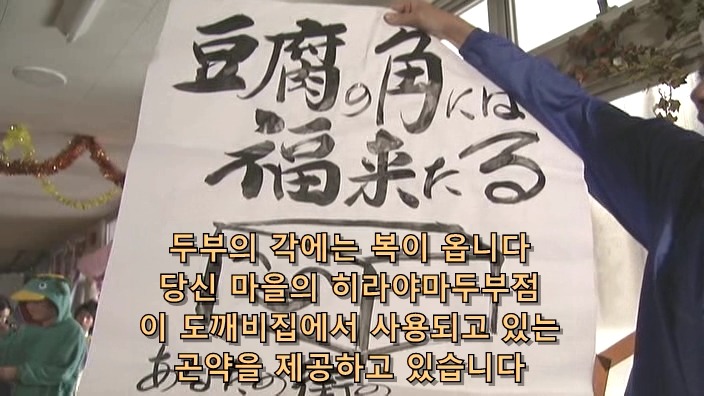 豆腐の角には
福来たる
두부의 각에는 복이 옵니다
당신 마을의 히라야마두부점
이 도깨비집에서 사용되고 있는
곤약을 제공하고 있습니다
あなたの街の